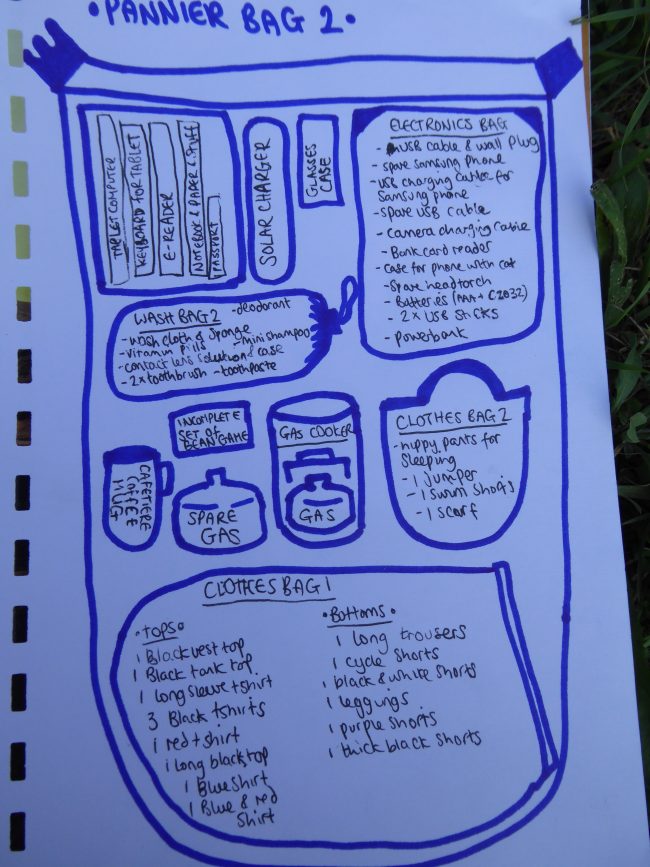 •PANNIER BAG 2•
TABLET COMPUTER
KEYBOARD FOR TABLET
E-READER
NOTEBOOK & PAPER STUFF
PASSPORT
SOLAR CHARGER
GLASSES
CASE
ELECTRONICS BAG
- USB cable & wall plug
- spare samsung phone
- USB charging cable for
Samsung phone
- spare USB cable
- camera charging cable
- Bank card reader
- case for phone with cat
- spare headtorch
- Batteries (AAA + C2032)
- 2 x USB sticks
- powerbank
WASH BAG 2
- deodorant
- wash cloth & sponge
- vitamin pills
- mini shampoo
- contact lens solution & case
- 2x toothbrush
- toothpaste
INCOMPLETE
SET OF
BEAN GAME
GAS COOKER
GAS
CAFETIERE
COFFEE
MUG
SPARE
GAS
CLOTHES BAG 2
- hippy pants for
sleeping
- 1 jumper
- 1 swim shorts
- 1 scarf
CLOTHES BAG 1
•TOPS•
1 Black vest top
1 Black tank top
1 long sleeve tshirt
3 Black tshirts
1 red tshirt
1 long black top
1 Blue shirt
1 Blue & red
shirt
•Bottoms•
1 long trousers
1 cycle shorts
1 black & white shorts
1 leggings
1 purple shorts
1 thick black shorts